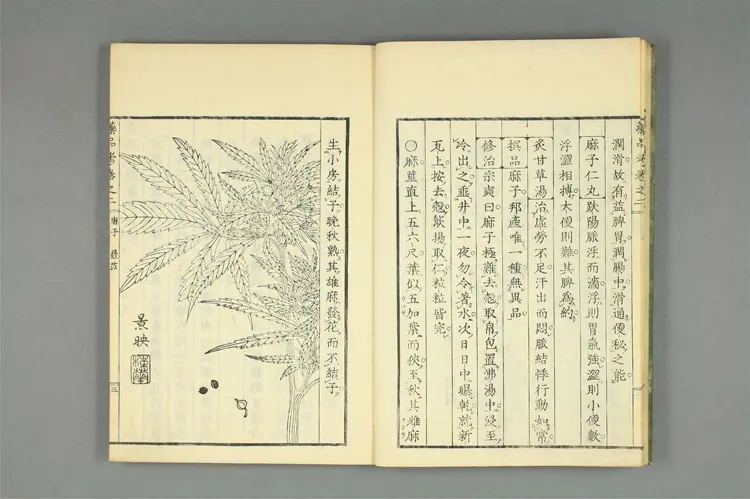 潤滑故有益脾胃潤腸中滑通便秘之能
麻子仁丸 趺陽脈浮而濇浮則胃氣強濇則小便數
浮澀相搏大便則難其脾為約
炙甘草湯 治虛勞不足汗出而悶脈結悸行動如常
撰品麻子邦產唯一種無異品
修治宗奭曰麻子極難去殼取帛包置沸湯中浸至
冷出之垂井中一夜勿令著水次日日中曝乾就新
瓦上按去殼簸揚取仁粒粒皆完
○麻莖直上五六尺葉似五加葉而狹至秋其雌麻
藥品考卷之二
生小房結子晚秋熟其雄麻發花而不結子
景映
藥品考卷之二
麻子
三